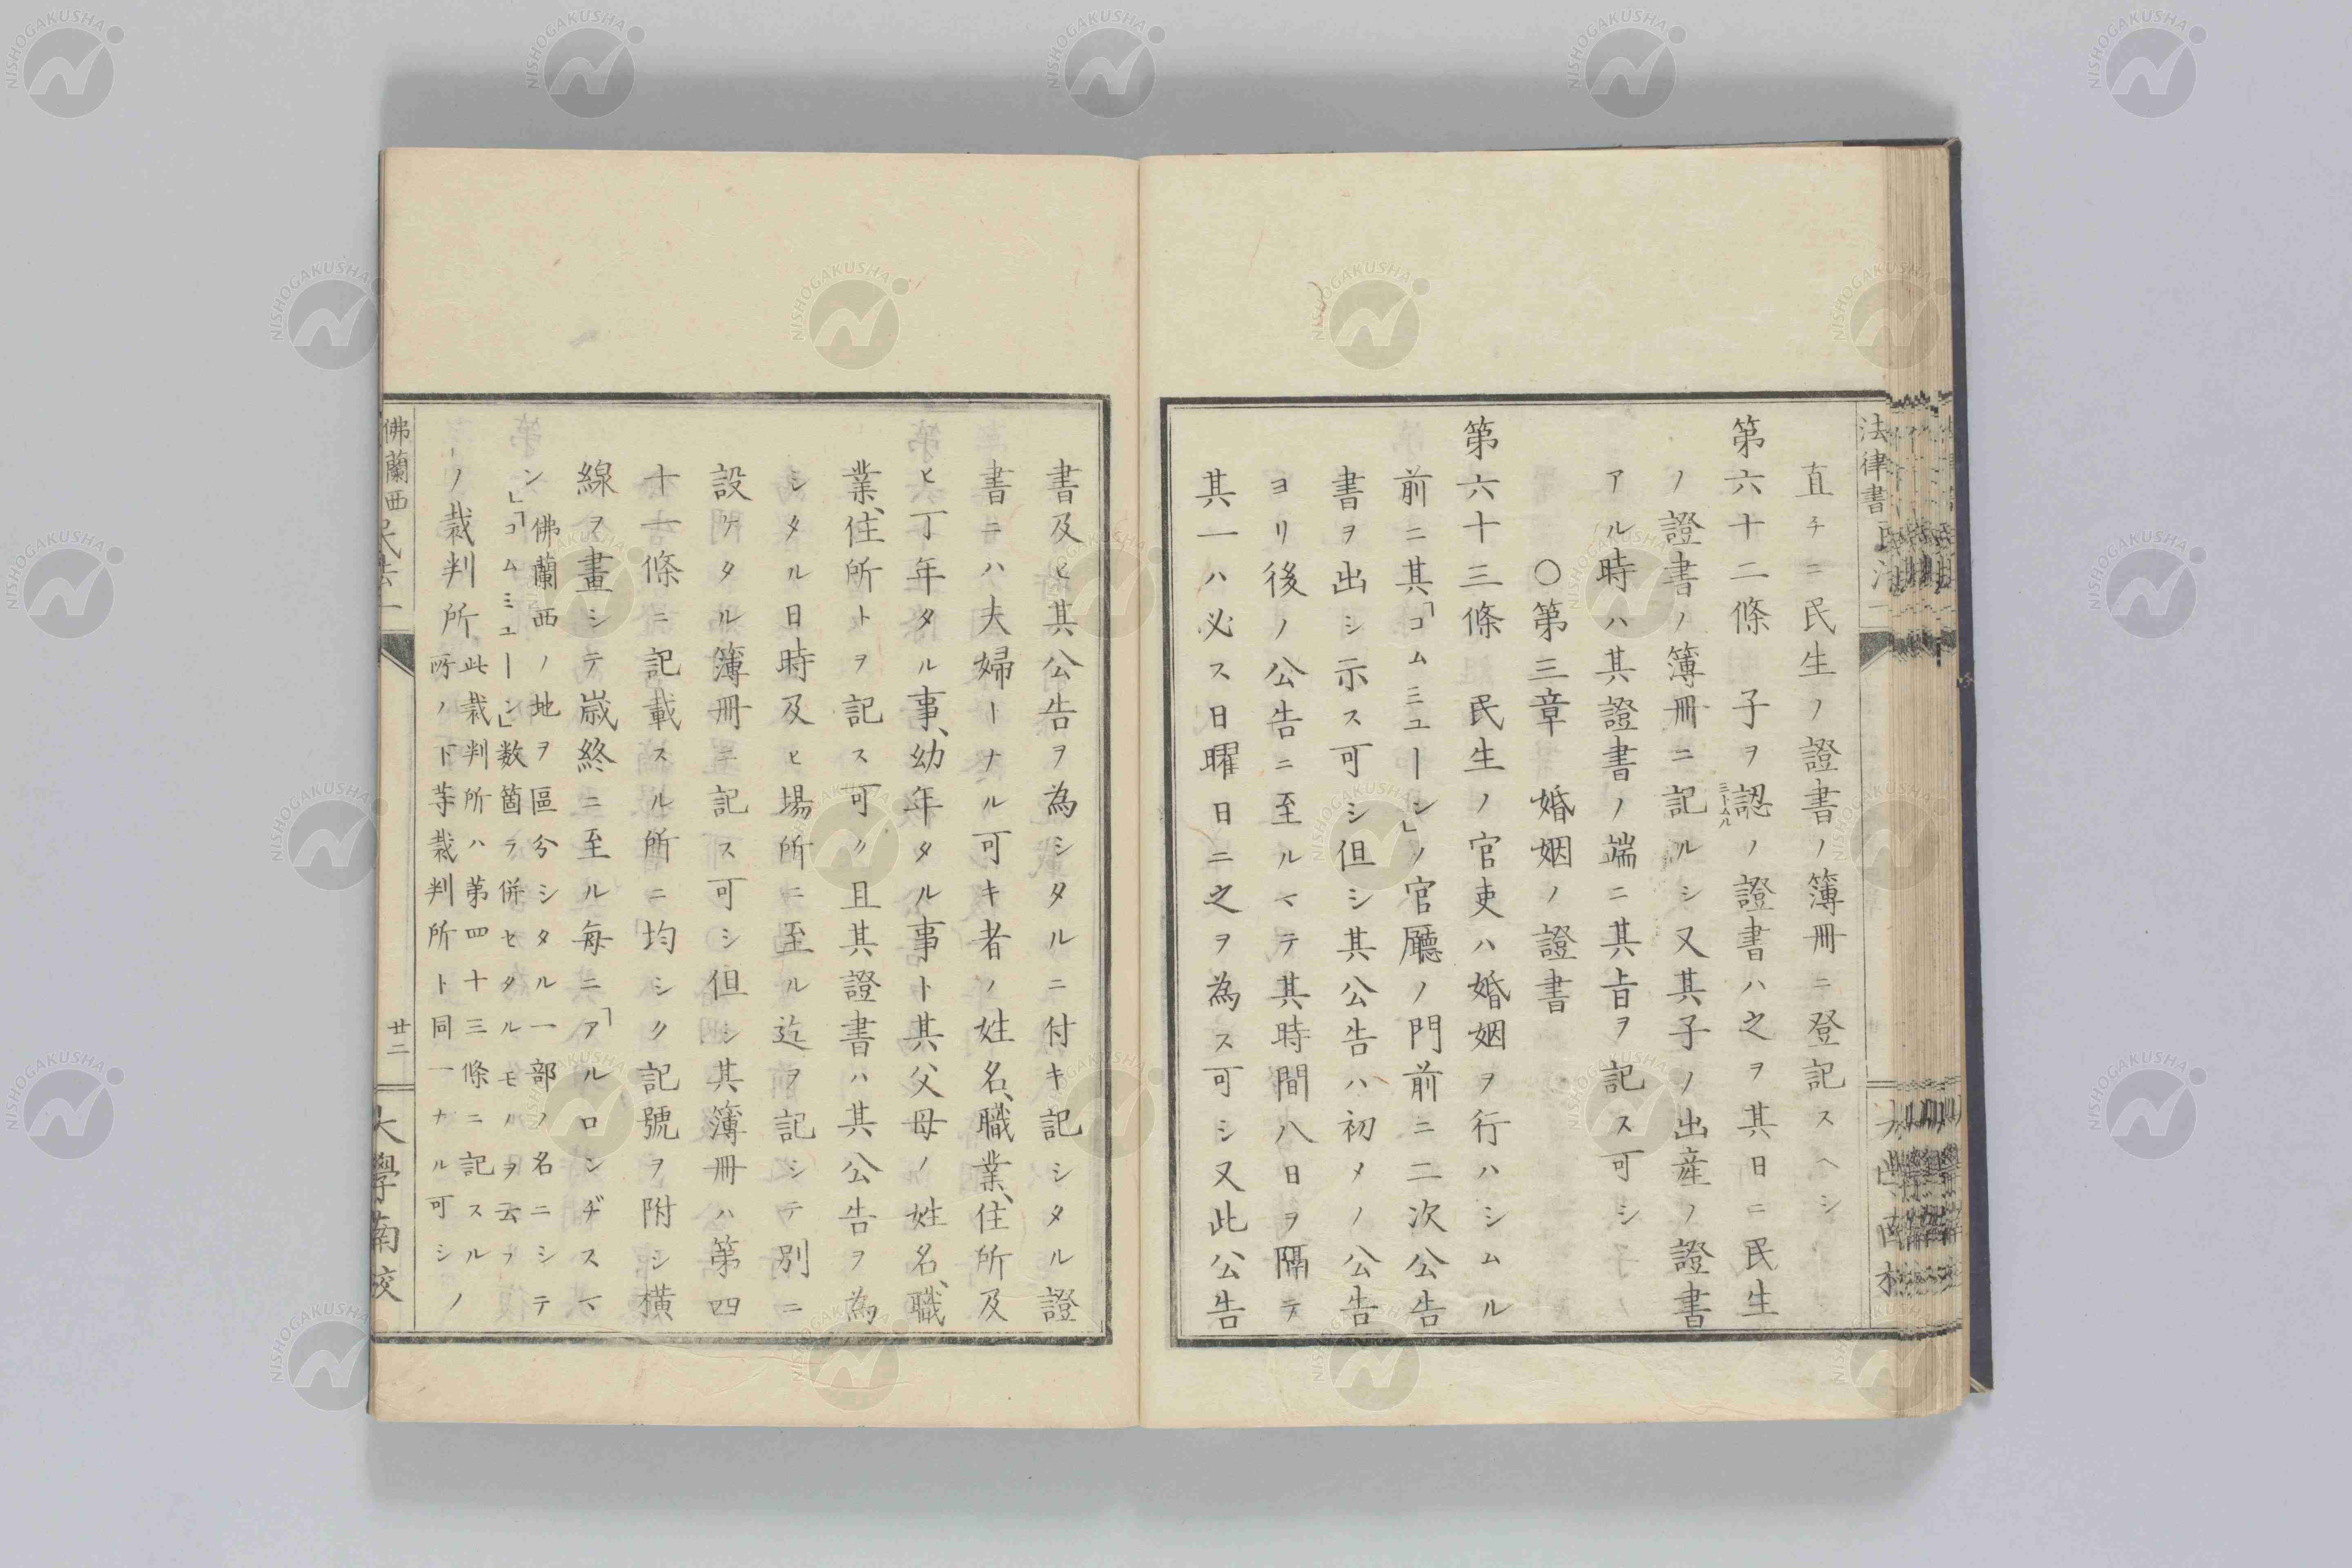 直チニ民生ノ證書ノ簿冊ニ登記スヘシ
第六十二條 子ヲ認ノ證書ハ之ヲ其日ニ民生
ミトムル
ノ證書ノ簿冊ニ記ルシ又其子ノ出産ノ證書
アル時ハ其證書ノ端ニ其旨ヲ記ス可シ
〇第三章 婚姻ノ證書
第六十三條 民生ノ官吏ハ婚姻ヲ行ハシムル
前ニ其「コムミユーン」ノ官廳ノ門前ニ二次公告
書ヲ出シ示ス可シ但シ其公告ハ初メノ公告
ヨリ後ノ公告ニ至ルマテ其時間八日ヲ隔テ
其一ハ必ス日曜日ニ之ヲ為ス可シ又此公告
書及ヒ其公告ヲ為シタルニ付キ記シタル證
書ニハ夫婦ーナル可キ者ノ姓名、職業、住所及
ヒ丁年タル事、幼年タル事ト其父母ノ姓名、職
業、住所トヲ記ス可ク且其證書ハ其公告ヲ為
シタル日時及ヒ場所ニ至ル迄ヲ記シテ別ニ
設ケタル簿冊ニ記ス可シ但シ其簿冊ハ第四
十一條ニ記載スル所ニ均シク記號ヲ附シ横
線ヲ畫シテ嵗終ニ至ル毎ニ「アルロンヂスマ
ン
佛蘭西ノ地ヲ區分シタル一部ノ名ニシテ
」「コムミユーン」数箇ヲ併セタルモノヲ云フ
ーノ裁判所
此裁判所ハ第四十三條ニ記スルノ
所ノ下等裁判所ト同一ナル可シノ
法律書
佛蘭西民法一
廿二
大學南校
NISHOGAKUSHA